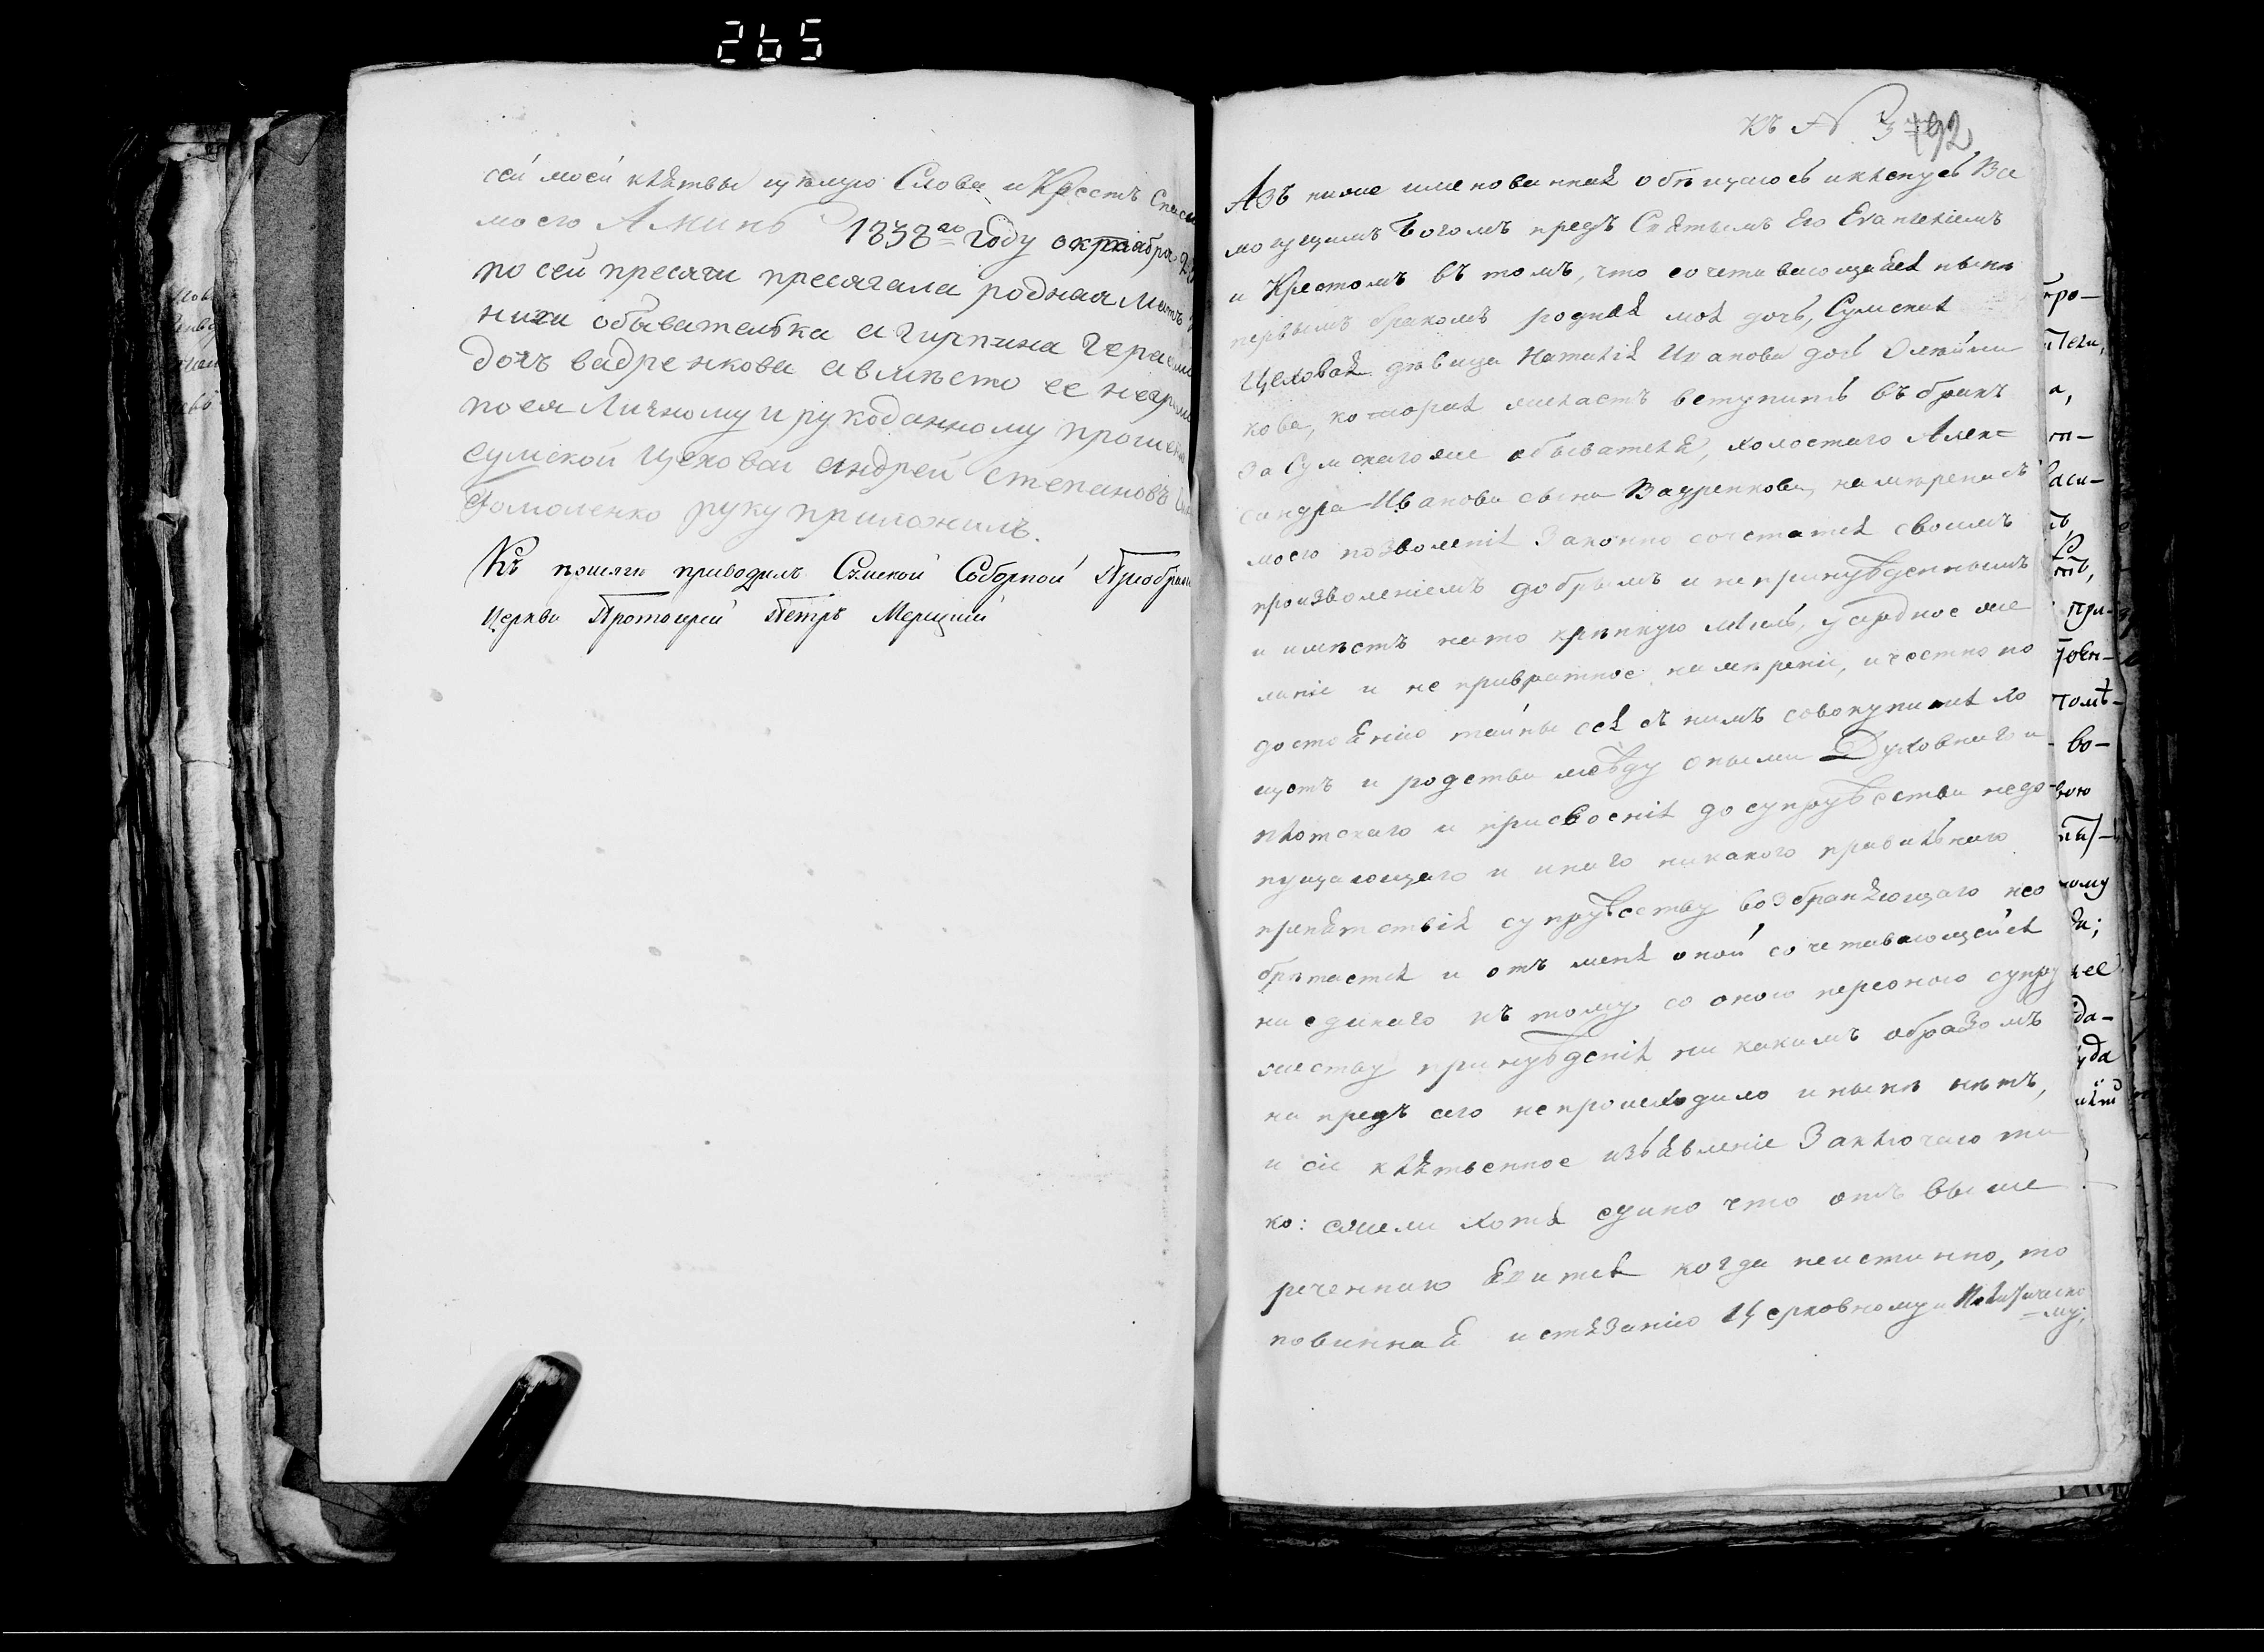 265
сей моей клятвы цѣлую Слова и Крестъ Спаси
моего Аминь 1838го году октября 23
по сей пресяги пресягала родная мать
ниха обывателька агирпина Гераси
дочъ вадренкова авмѣсто ее неграмо
по ея личному и рукоданному прошен
сумской цеховой андрей степановъ
Гомоленко руку приложилъ.
Къ присягѣ приводилъ Сумской Соборной Преображ
Церкви Протоіерей Петръ Мерцій
къ № 3му 192
Азъ ниже именованная обѣщаюсь и клянусь Все
могущимъ Богомъ предъ Святымъ Его Евангеліемъ
и Крестомъ въ томъ, что сочетавающаяся нынѣ
первымъ бракомъ родная моя дочь, Сумская
Цеховая дѣвица Наталія Иванова дочь Олейни
кова, которая желаетъ вступить въ бракъ
за Сумскаго же обывателя, холостаго Алек=
сандра Иванова сына Вадренкова, намѣрена съ
моего позволенія Законно сочетатся своимъ
произволеніемъ добрымъ и непринужденнымъ
и имѣетъ на то крѣпкую мысль, усердное же
ланіе и не привратное намѣреніе, и честно по
достоянію тайны сея съ нимъ совокупится хо
щетъ и родства между оными Духовнаго и
плотскаго и присвоенія до супружества недо-
пущающаго и инаго никакого правильнаго
препятствія супружеству возбраняющаго нео
брѣтается и отъ меня оной сочетавающейся
ни единаго къ тому со оною персоною супру
жеству принужденія ни какимъ образомъ
на предъ сего непроисходило и нынѣ нѣтъ,
и сіе клятвенное изъявленіе Заключаю та
ко: ежели хотя едино что отъ выше
реченнаго явится когда неистинно, то
повинна я истязанію Церковному и Политическо
=му;